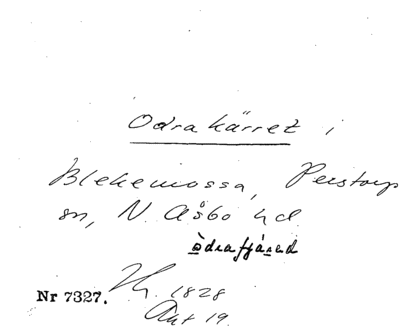 Odrakärret i
Blekemossa, Perstorp
sn, N. Åsbo hd.
òdrafjáred
Nr 7327. 1828
Akt 19.